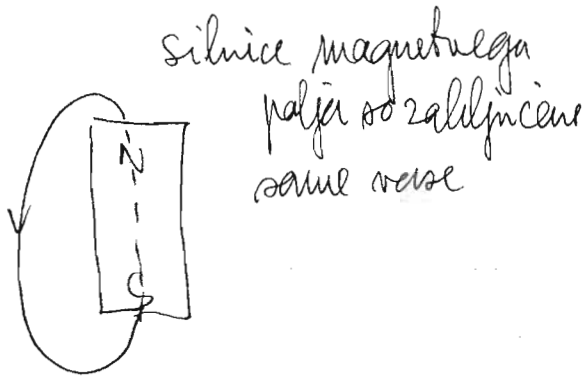 silnice magnetnega
polja so zaključene
same vase
N
S